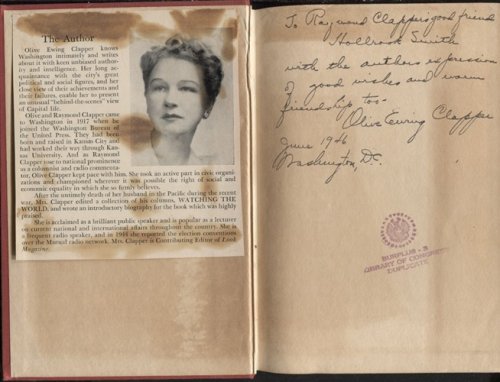 The Author
Olive Ewing Clapper knows
Washington intimately and writes
about it with keen unbiased author-
ity and intelligence. Her long ac-
quaintance with the city's great
political and social figures, and her
close view of their achievements and
their failures, enable her to present
an unusual "behind-the-scenes" view
of Capital life.
Olive and Raymond Clapper came
to Washington in 1917 when he
joined the Washington Bureau of
the United Press. They had been
born and raised in Kansas City and
had worked their way through Kan-
sas University. And as Raymond
Clapper rose to national prominence
as a columnist and radio commenta-
tor, Olive Clapper kept pace with him. She took an active part in civic organi-
zations and championed wherever it was possible the right of social and
economic equality in which she so firmly believes.
After the untimely death of her husband in the Pacific during the recent
war, Mrs. Clapper edited a collection of his columns, WATCHING THE
WORLD, and wrote an introductory biography for the book which was highly
praised.
She is acclaimed as a brilliant public speaker and is popular as a lecturer
on current national and international affairs throughout the country. She is
a frequent radio speaker, and in 1944 she reported the election conventions
over the Mutual radio network. Mrs. Clapper is Contributing Editor of Look
Magazine.
To Raymond Clappers good friend
Holbrook Smith
with the authors expression
of good wishes and warm
friendship too-
Olive Ewing Clapper
June 1946
Washington, D.C.
SURPLUS - 2
LIBRARY OF CONGRESS
DUPLICATE